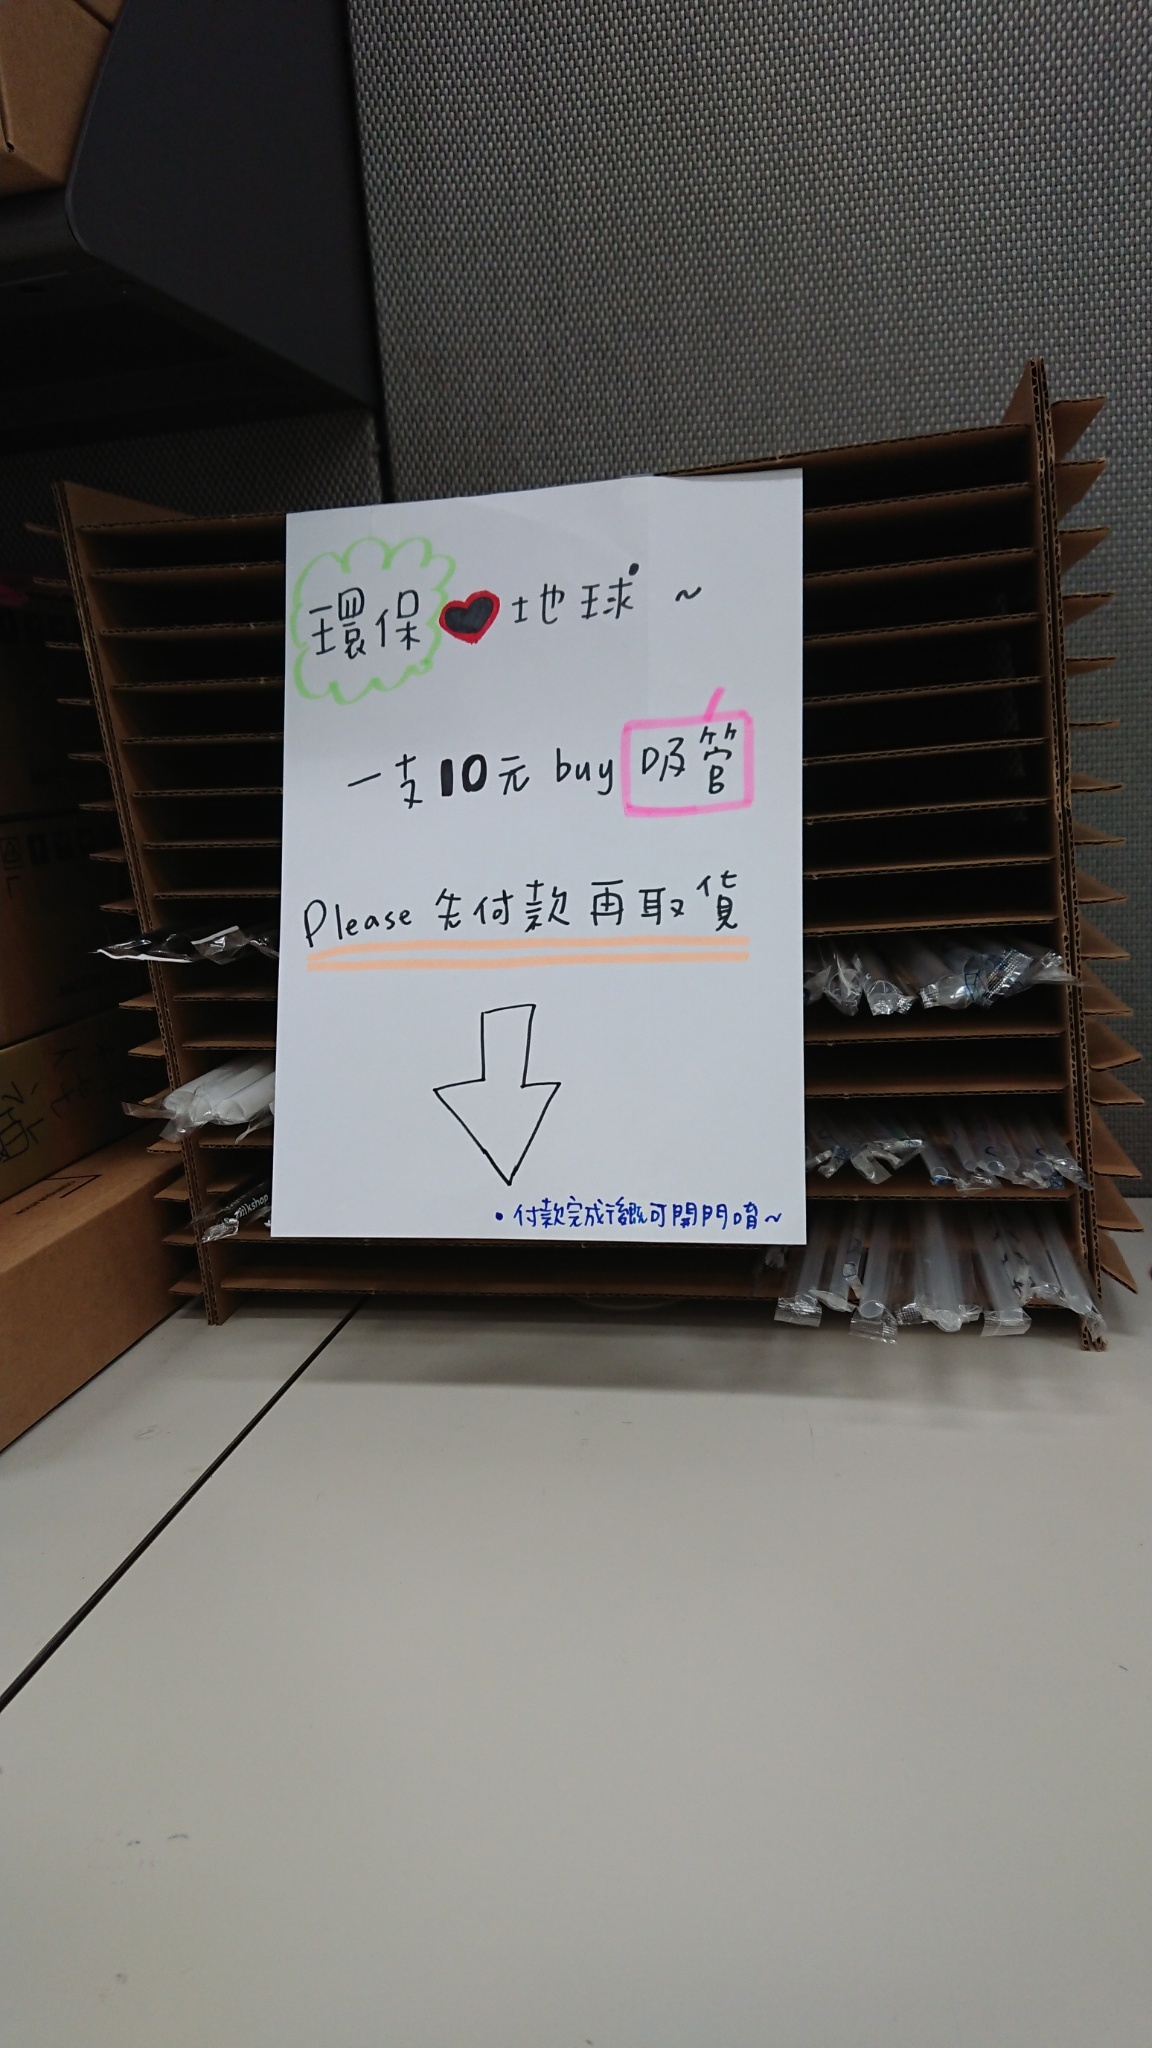 環保♥地球~
一支10元 buy 吸管
Please 先付款再取貨
•付款完成後概可開門唷~